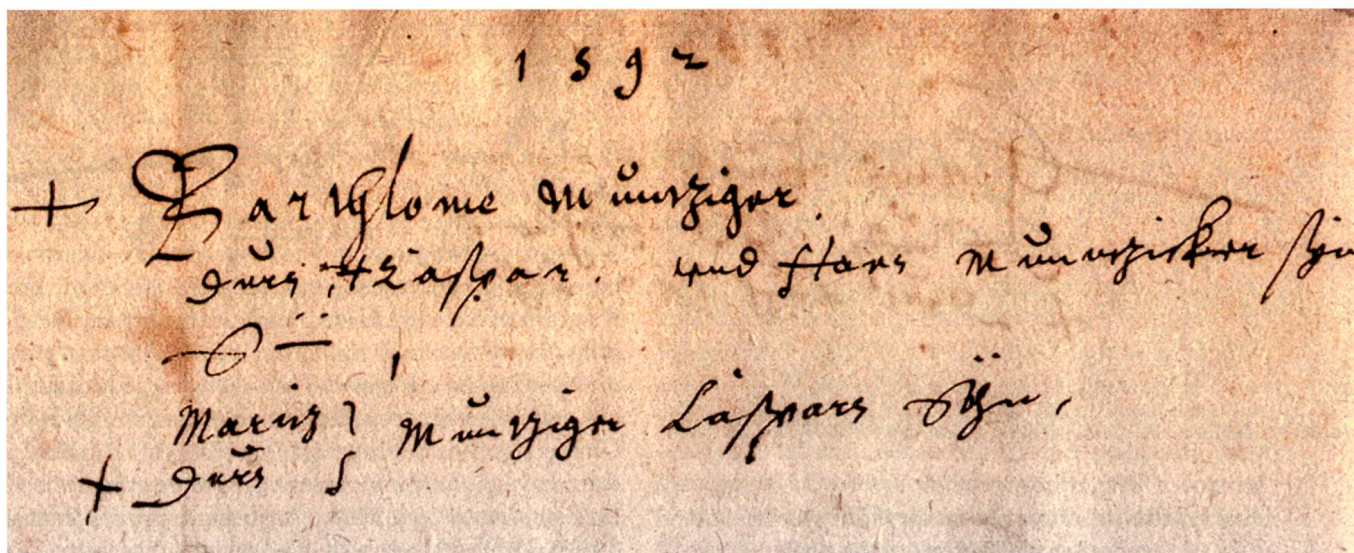 1592
+ Barthlome Muntziger.
Durs, + Caspar. vnd Hans Muntzicker syn
Sü
Maritz } Muntziger Caspars Sün,
+ Durs